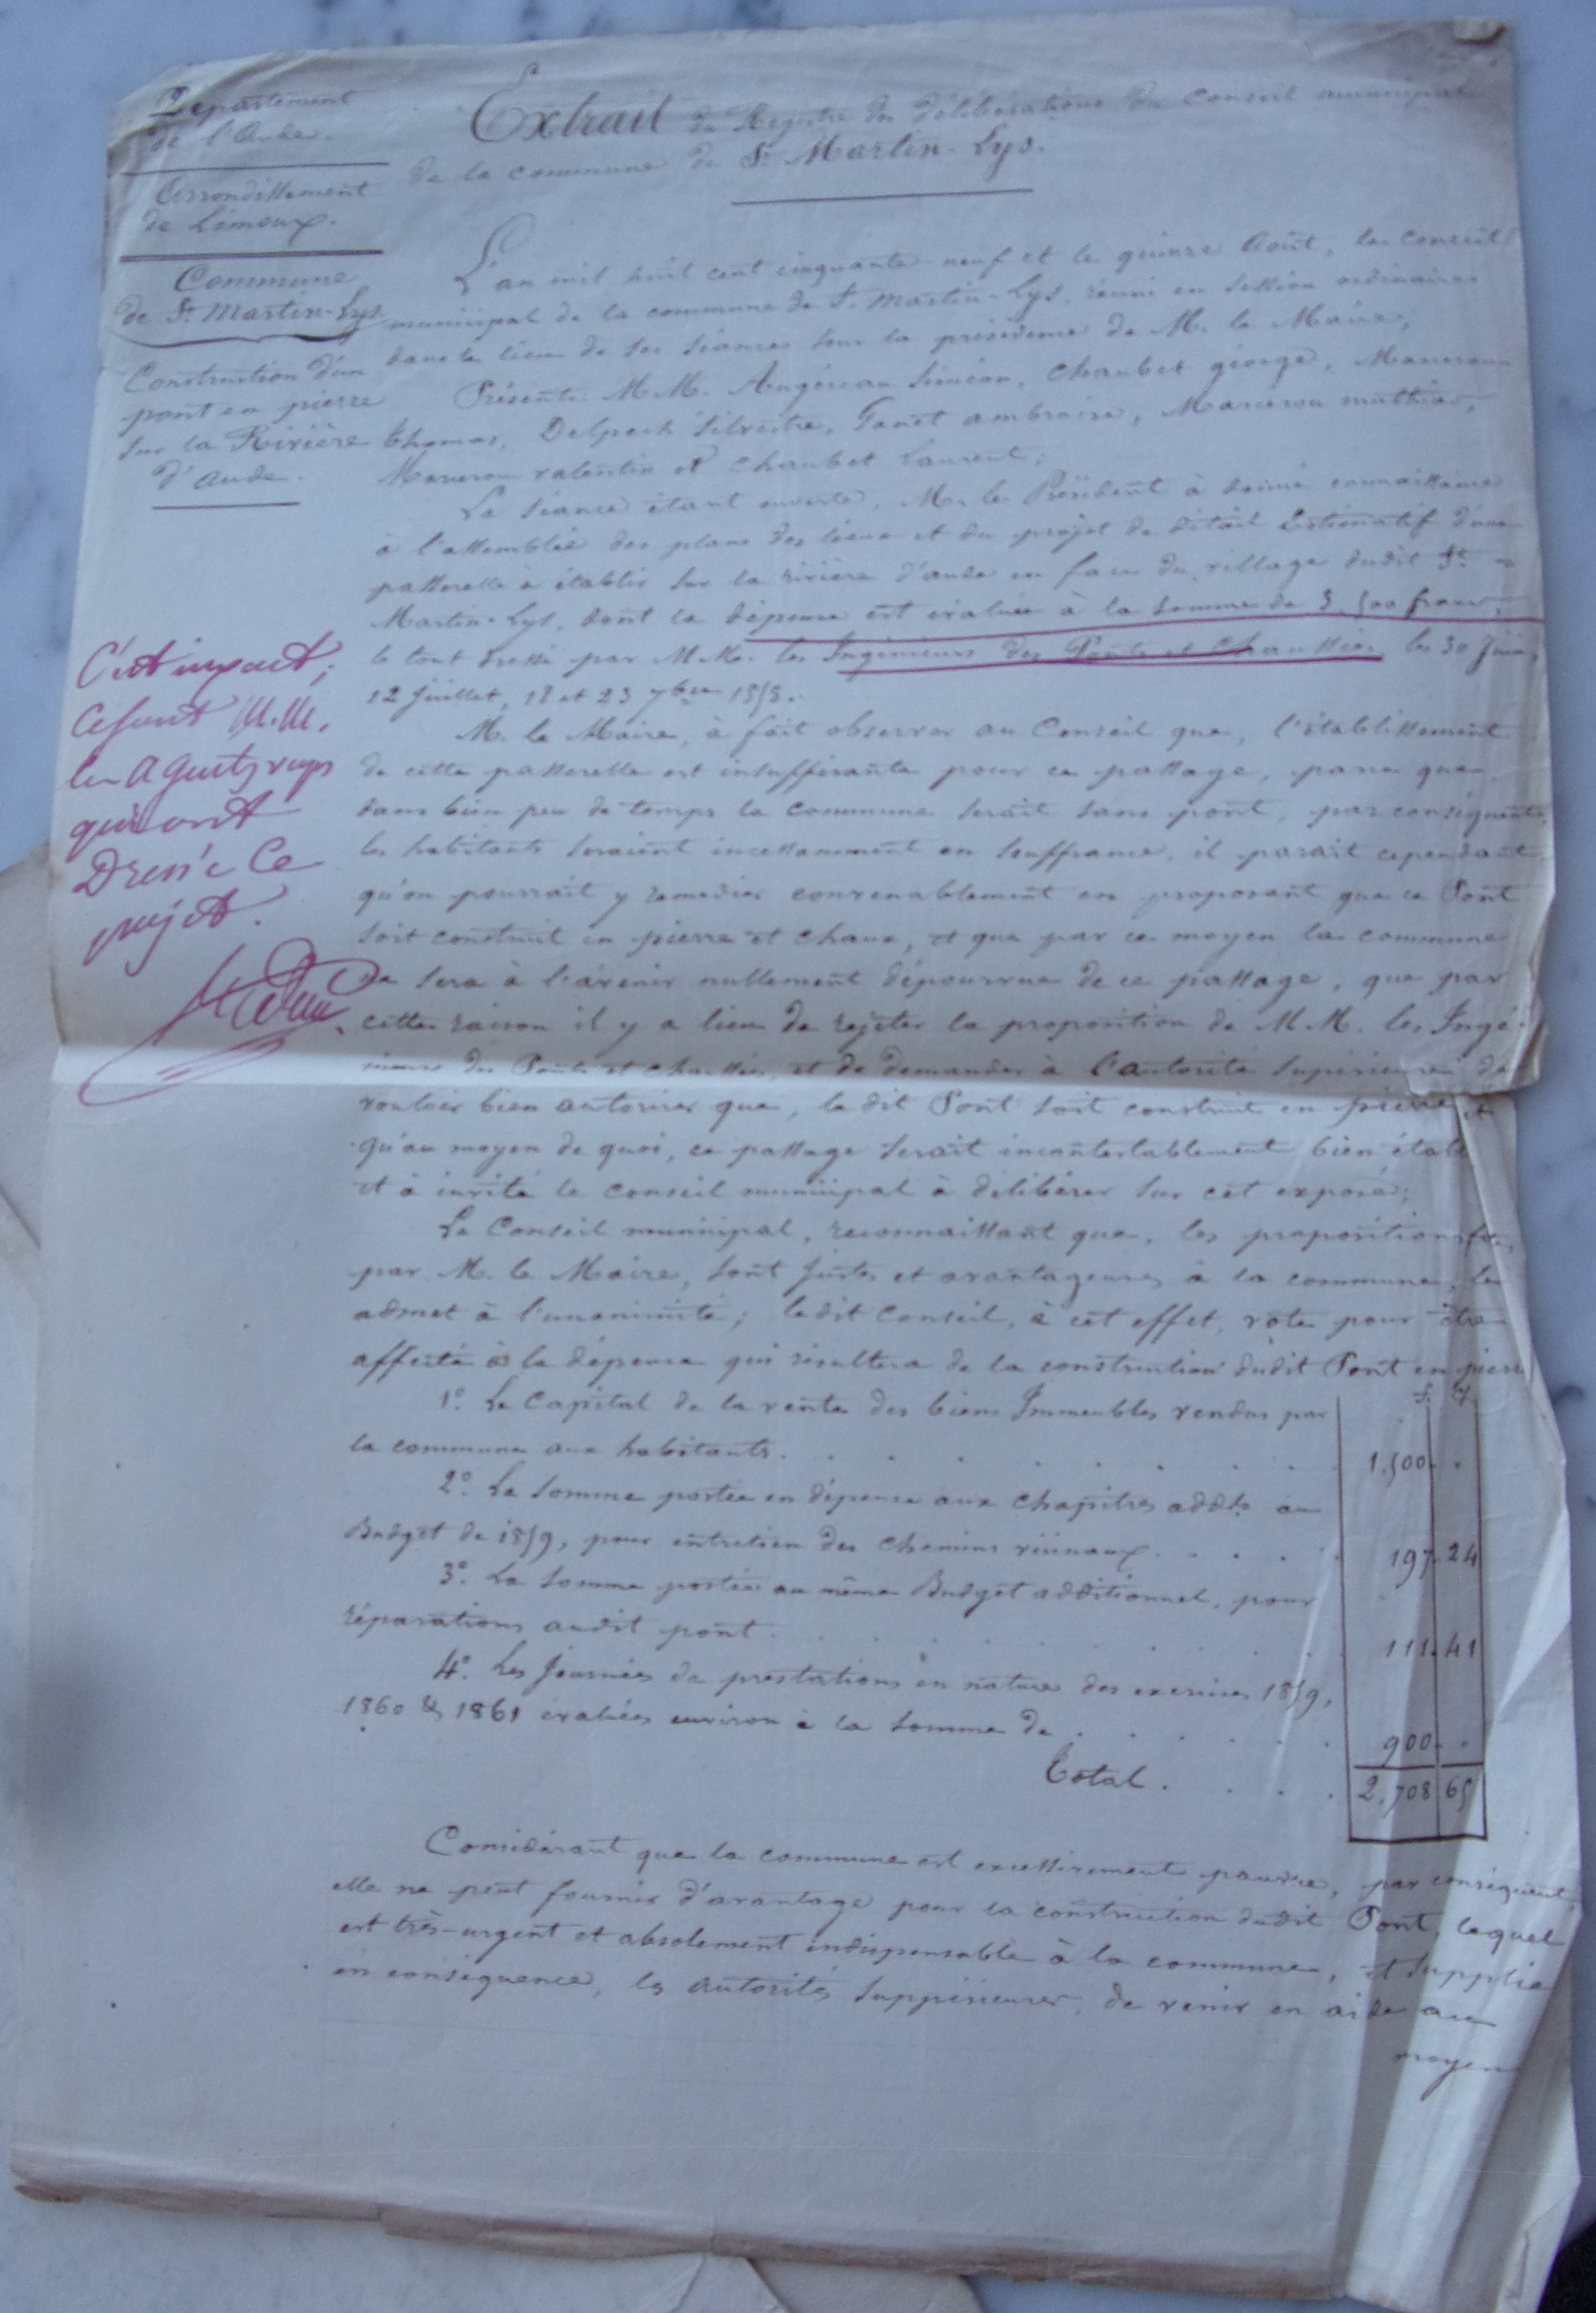 Département
de l'Aude.
Arrondissement
de Limoux.
Commune
de St Martin-Lys.
Construction d'un
pont en pierre
sur la Rivière
d'Aude.
Extrait du Registre des délibérations du Conseil municipal
de la commune de St Martin-Lys.
L'an mil huit cent cinquante-neuf et le quinze Août, le conseil
municipal de la commune de St Martin-Lys, réuni en session ordinaire
dans le lieu de ses séances sous la présidence de M. le Maire,
Présents: M.M. Augéreau Siméon, Chaubet géorge,
thomas, Delpech Silvestre, ambroise, mathieu,
valentin et Chaubet Laurent;
La séance étant ouverte, M. le Président à donné connaissance
à l'assemblée des plans des lieux et du projet de détail Estimatif d'une
passerelle à établir sur la rivière d'aude en face du village dudit St
Martin-Lys, dont la dépense est évaluée à la somme de 3.500 francs,
le tout dressé par M.M. les Ingénieurs des Ponts et Chaussées les 30 Juin,
12 Juillet, 18 et 23 7bre 1858.
M. le Maire, à fait observer au Conseil que, l'établissement
de cette passerelle est insuffisante pour ce passage, parce que
dans bien peu de temps la commune serait sans pont, par conséquent,
les habitants seraient incessamment en souffrance, il parait cependant
qu'on pourrait y remedier convenablement en proposant que ce Pont
soit construit en pierre et chaux, et que par ce moyen la commune
ne sera à l'avenir nullement dépourvue de ce passage, que par
cette raison il y a lieu de rejeter la proposition de M.M. les Ingé-
nieurs des Ponts et chaussées, et de demander à l'autorité supérieure de
vouloir bien autoriser que, le dit Pont soit construit en pierre et
qu'au moyen de quoi, ce passage serait incontestablement bien établi
et à invité le Conseil municipal à délibérer sur cet exposé;
Le Conseil municipal, reconnaissant que, les propositions
par M. le Maire, sont justes et avantageuses à la commune, les
admet à l'unanimité; ledit Conseil, à cet effet, vote pour être
affecté à la dépense qui résultera de la construction dudit Pont en pierre
1º. Le Capital de la rente des biens Immeubles vendus par
la commune aux habitants. 1.500. "
2º. La somme portée en dépense aux chapitres addls au
Budget de 1859, pour entretien des chemins vicinaux. 197. 24
3º. La somme portée au même Budget additionnel, pour
réparations audit pont. 111. 41
4º. Les Journées de prestations en nature des exercices 1859,
1860 & 1861 évaluées environ à la somme de 900. "
Total. 2.708 65
Considérant que la commune est excessivement pauvre, par conséquent
elle ne peut fournir d'avantage pour la construction dudit Pont, lequel
est très-urgent et absolement indispensable à la commune, et supplie
en conséquence, les autorités suppérieures, de venir en aide au
moyen
C'est inexact;
ce sont M.M.
les Agents voyers
qui ont
Dressé ce
projet.